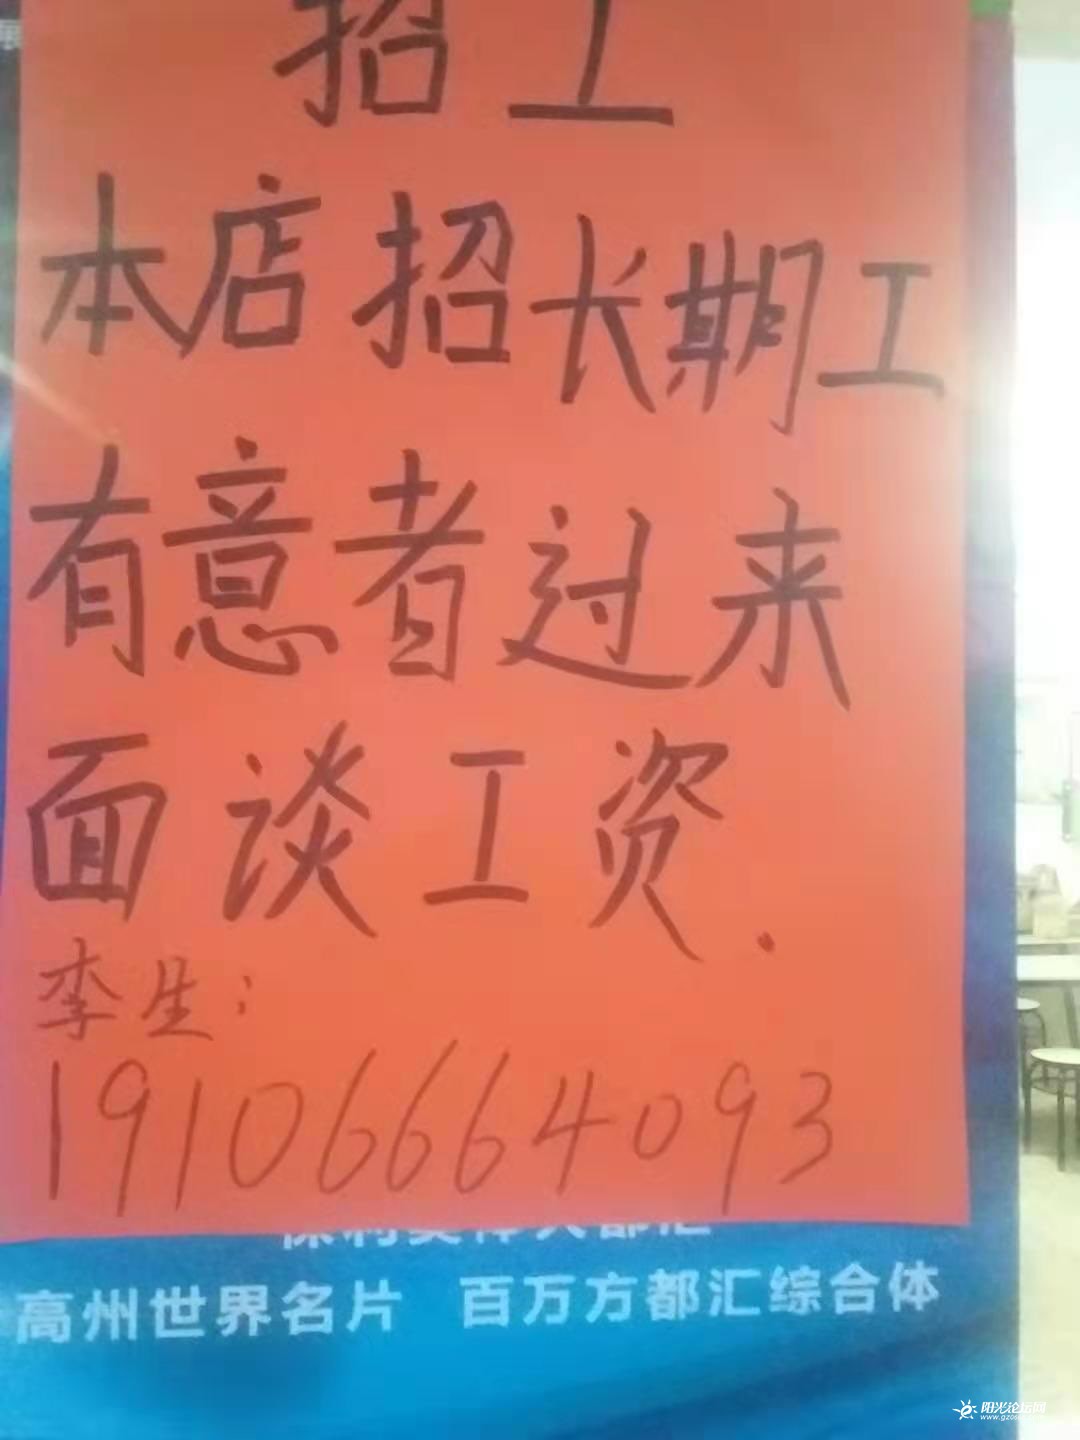 招工
本店招长期工
有意者过来
面谈工资.
李生:
19106664093
高州世界名片 百万方都汇综合体
阳光论坛网